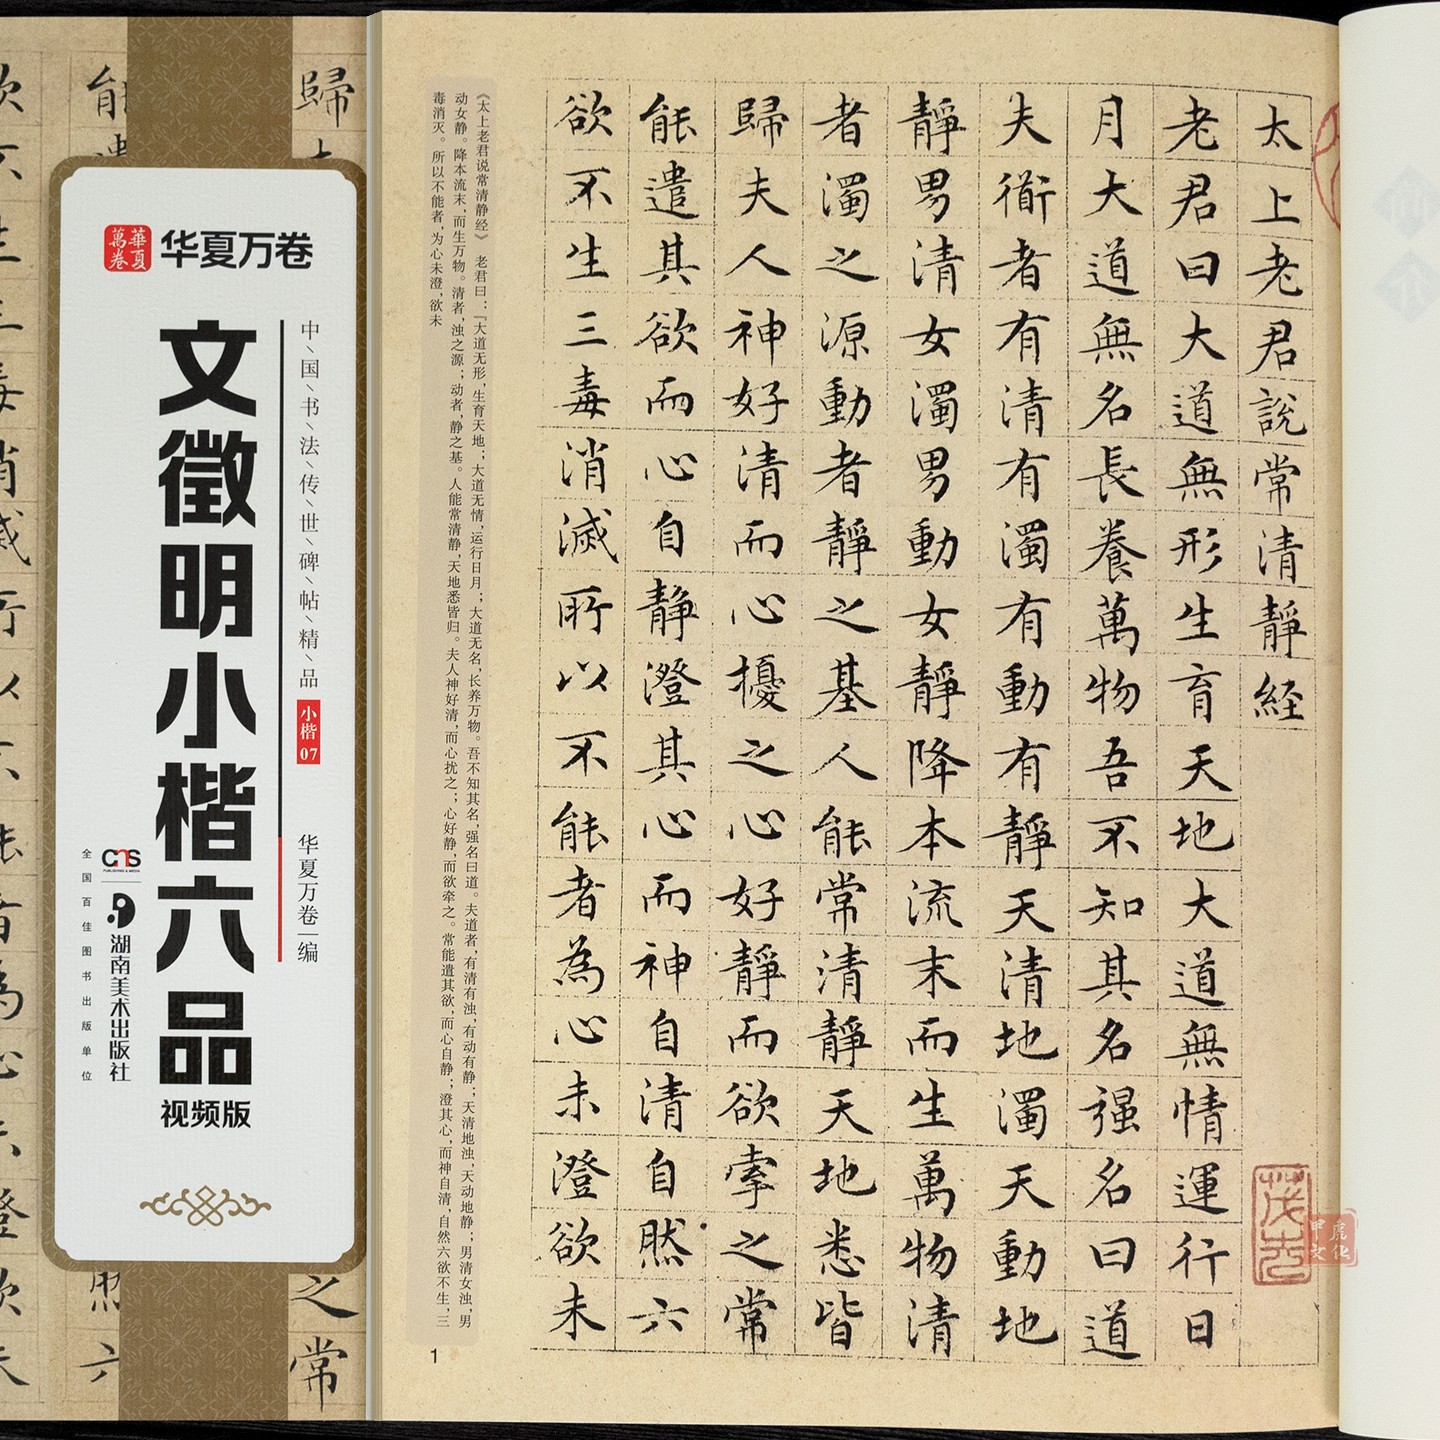 華夏萬卷
华夏万卷
中国书法传世碑帖精品
小楷07
华夏万卷 编
文徵明小楷六品
视频版
CNS
PUBLISHING & MEDIA
湖南美术出版社
全国百佳图书出版单位
太上老君說常清靜経
老君曰大道無形生育天地大道無情運行日
月大道無名長養萬物吾不知其名强名曰道
夫衜者有清有濁有動有靜天清地濁天動地
靜男清女濁男動女靜降本流末而生萬物清
者濁之源動者靜之基人能常清靜天地悉皆
歸夫人神好清而心擾之心好靜而欲牽之常
能遣其欲而心自静澄其心而神自清自然六
欲不生三毒消滅所以不能者為心未澄欲未
《太上老君说常清静经》 老君曰：“大道无形，生育天地；大道无情，运行日月；大道无名，长养万物。吾不知其名，强名曰道。夫道者，有清有浊，有动有静；天清地浊，天动地静；男清女浊，男
动女静。降本流末，而生万物。清者，浊之源；动者，静之基。人能常清静，天地悉皆归。夫人神好清，而心扰之；心好静，而欲牵之。常能遣其欲，而心自静；澄其心，而神自清，自然六欲不生，三
毒消灭。所以不能者，为心未澄，欲未
1
虎文化